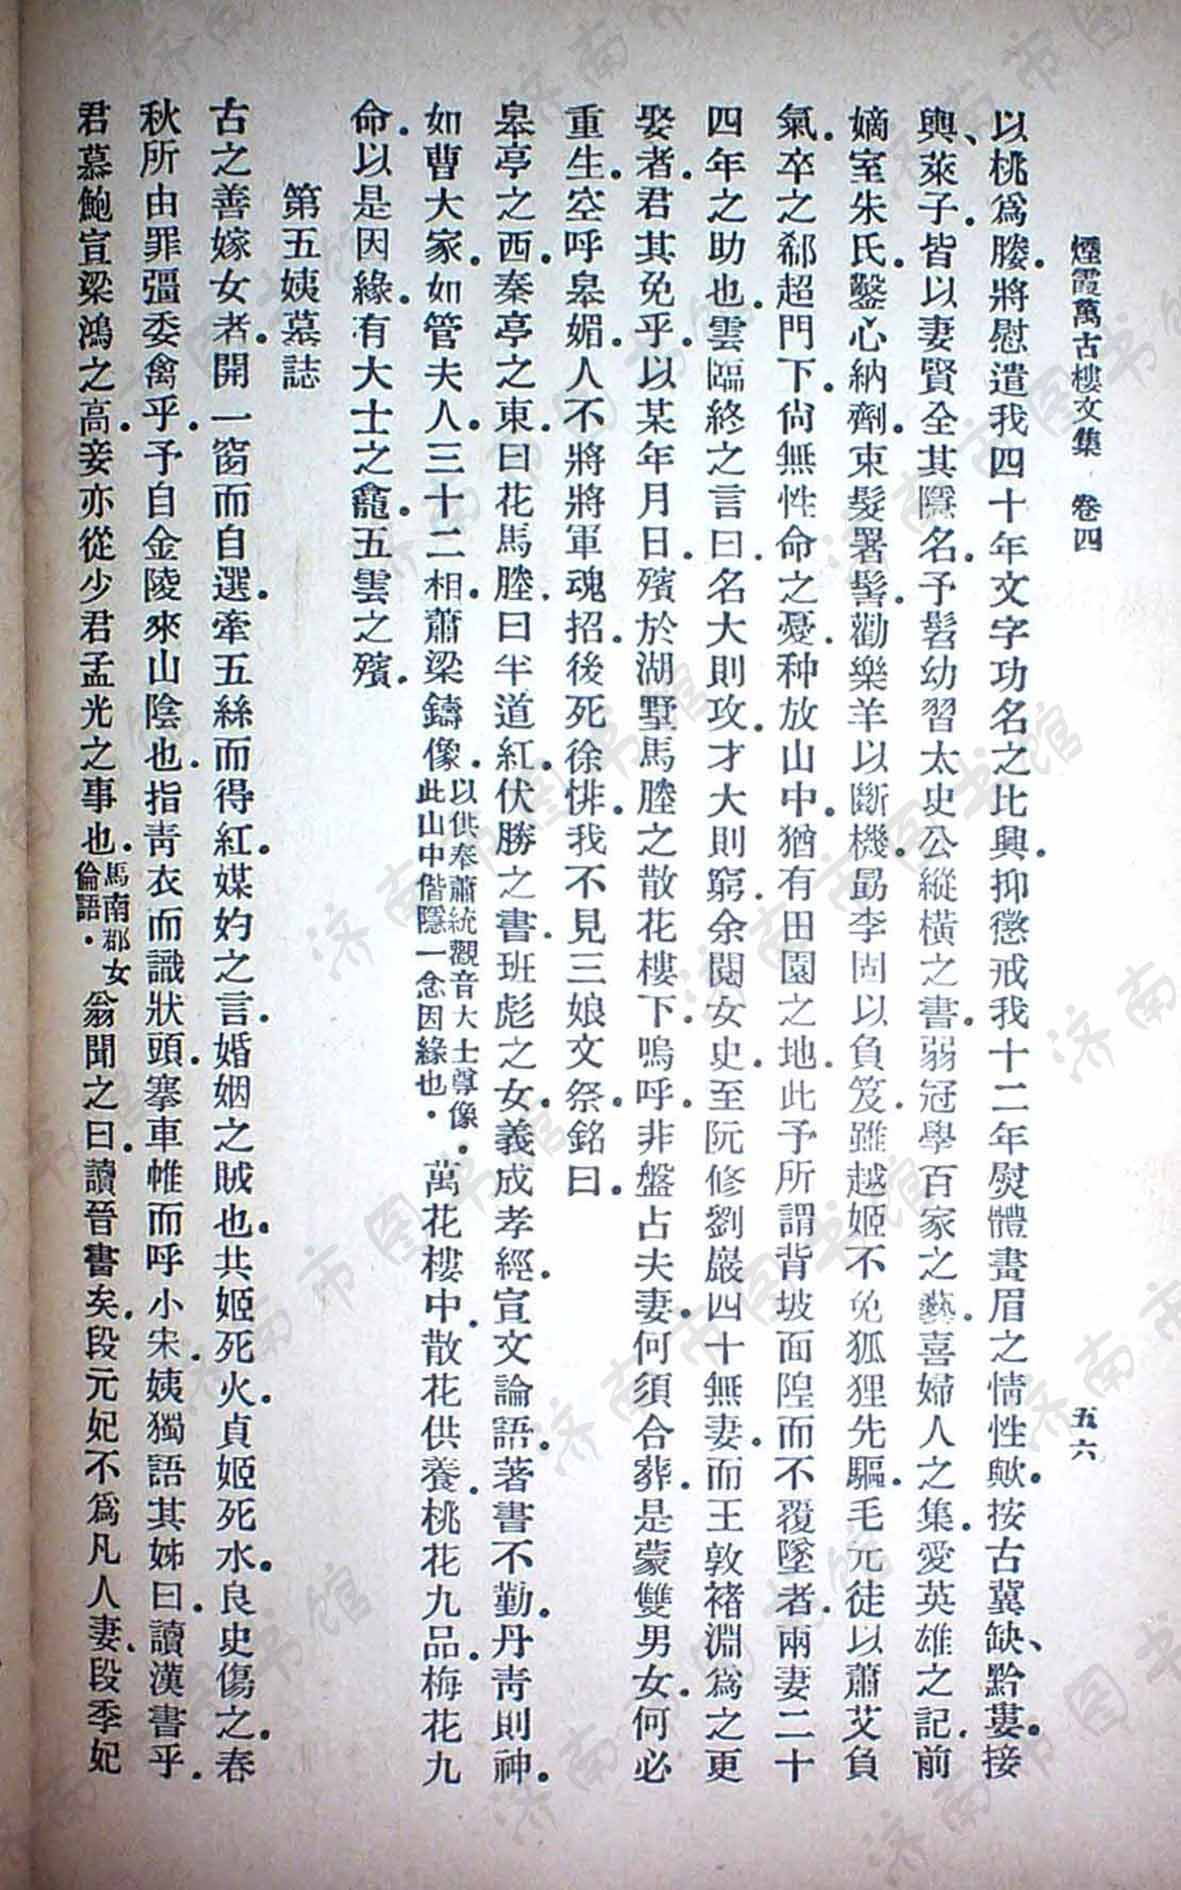 煙霞萬古樓文集　卷四　五六
以桃爲媵.將慰遣我四十年文字功名之比興.抑懲戒我十二年熨體畫眉之情性歟.按古冀缺、黔婁.接
輿、萊子.皆以妻賢全其隱名.予髫幼習太史公縱橫之書.弱冠學百家之藝.喜婦人之集.愛英雄之記.前
嫡室朱氏.鑿心納劑.束髮署髻.勸樂羊以斷機.勗李固以負笈.雖越姬不免狐狸先驅.毛元徒以蕭艾負
氣.卒之郗超門下.尙無性命之憂.种放山中.猶有田園之地.此予所謂背坡面隍而不覆墜者.兩妻二十
四年之助也.雲臨終之言曰.名大則攻.才大則窮.余閱女史.至阮修劉巖四十無妻.而王敦褚淵爲之更
娶者.君其免乎.以某年月日.殯於湖墅馬塍之散花樓下.嗚呼.非盤占夫妻.何須合葬.是蒙雙男女.何必
重生.空呼皋媚.人不將將軍魂招.後死徐悱.我不見三娘文祭.銘曰.
皋亭之西.秦亭之東.曰花馬塍.曰半道紅.伏勝之書.班彪之女.義成孝經.宣文論語.著書不勤.丹靑則神.
如曹大家.如管夫人.三十二相.蕭梁鑄像.以供奉蕭統觀音大士尊像.此山中偕隱一念因緣也.萬花樓中.散花供養.桃花九品.梅花九
命.以是因緣.有大士之龕.五雲之殯.
第五姨墓誌
古之善嫁女者.開一窗而自選.牽五絲而得紅.媒妁之言.婚姻之賊也.共姬死火.貞姬死水.良史傷之.春
秋所由罪彊委禽乎.予自金陵來山陰也.指靑衣而識狀頭.搴車帷而呼小宋.姨獨語其姊曰.讀漢書乎.
君慕鮑宣梁鴻之高.妾亦從少君孟光之事也.馬南郡女倫語.翁聞之曰.讀晉書矣.段元妃不爲凡人妻.段季妃
济南市图书馆